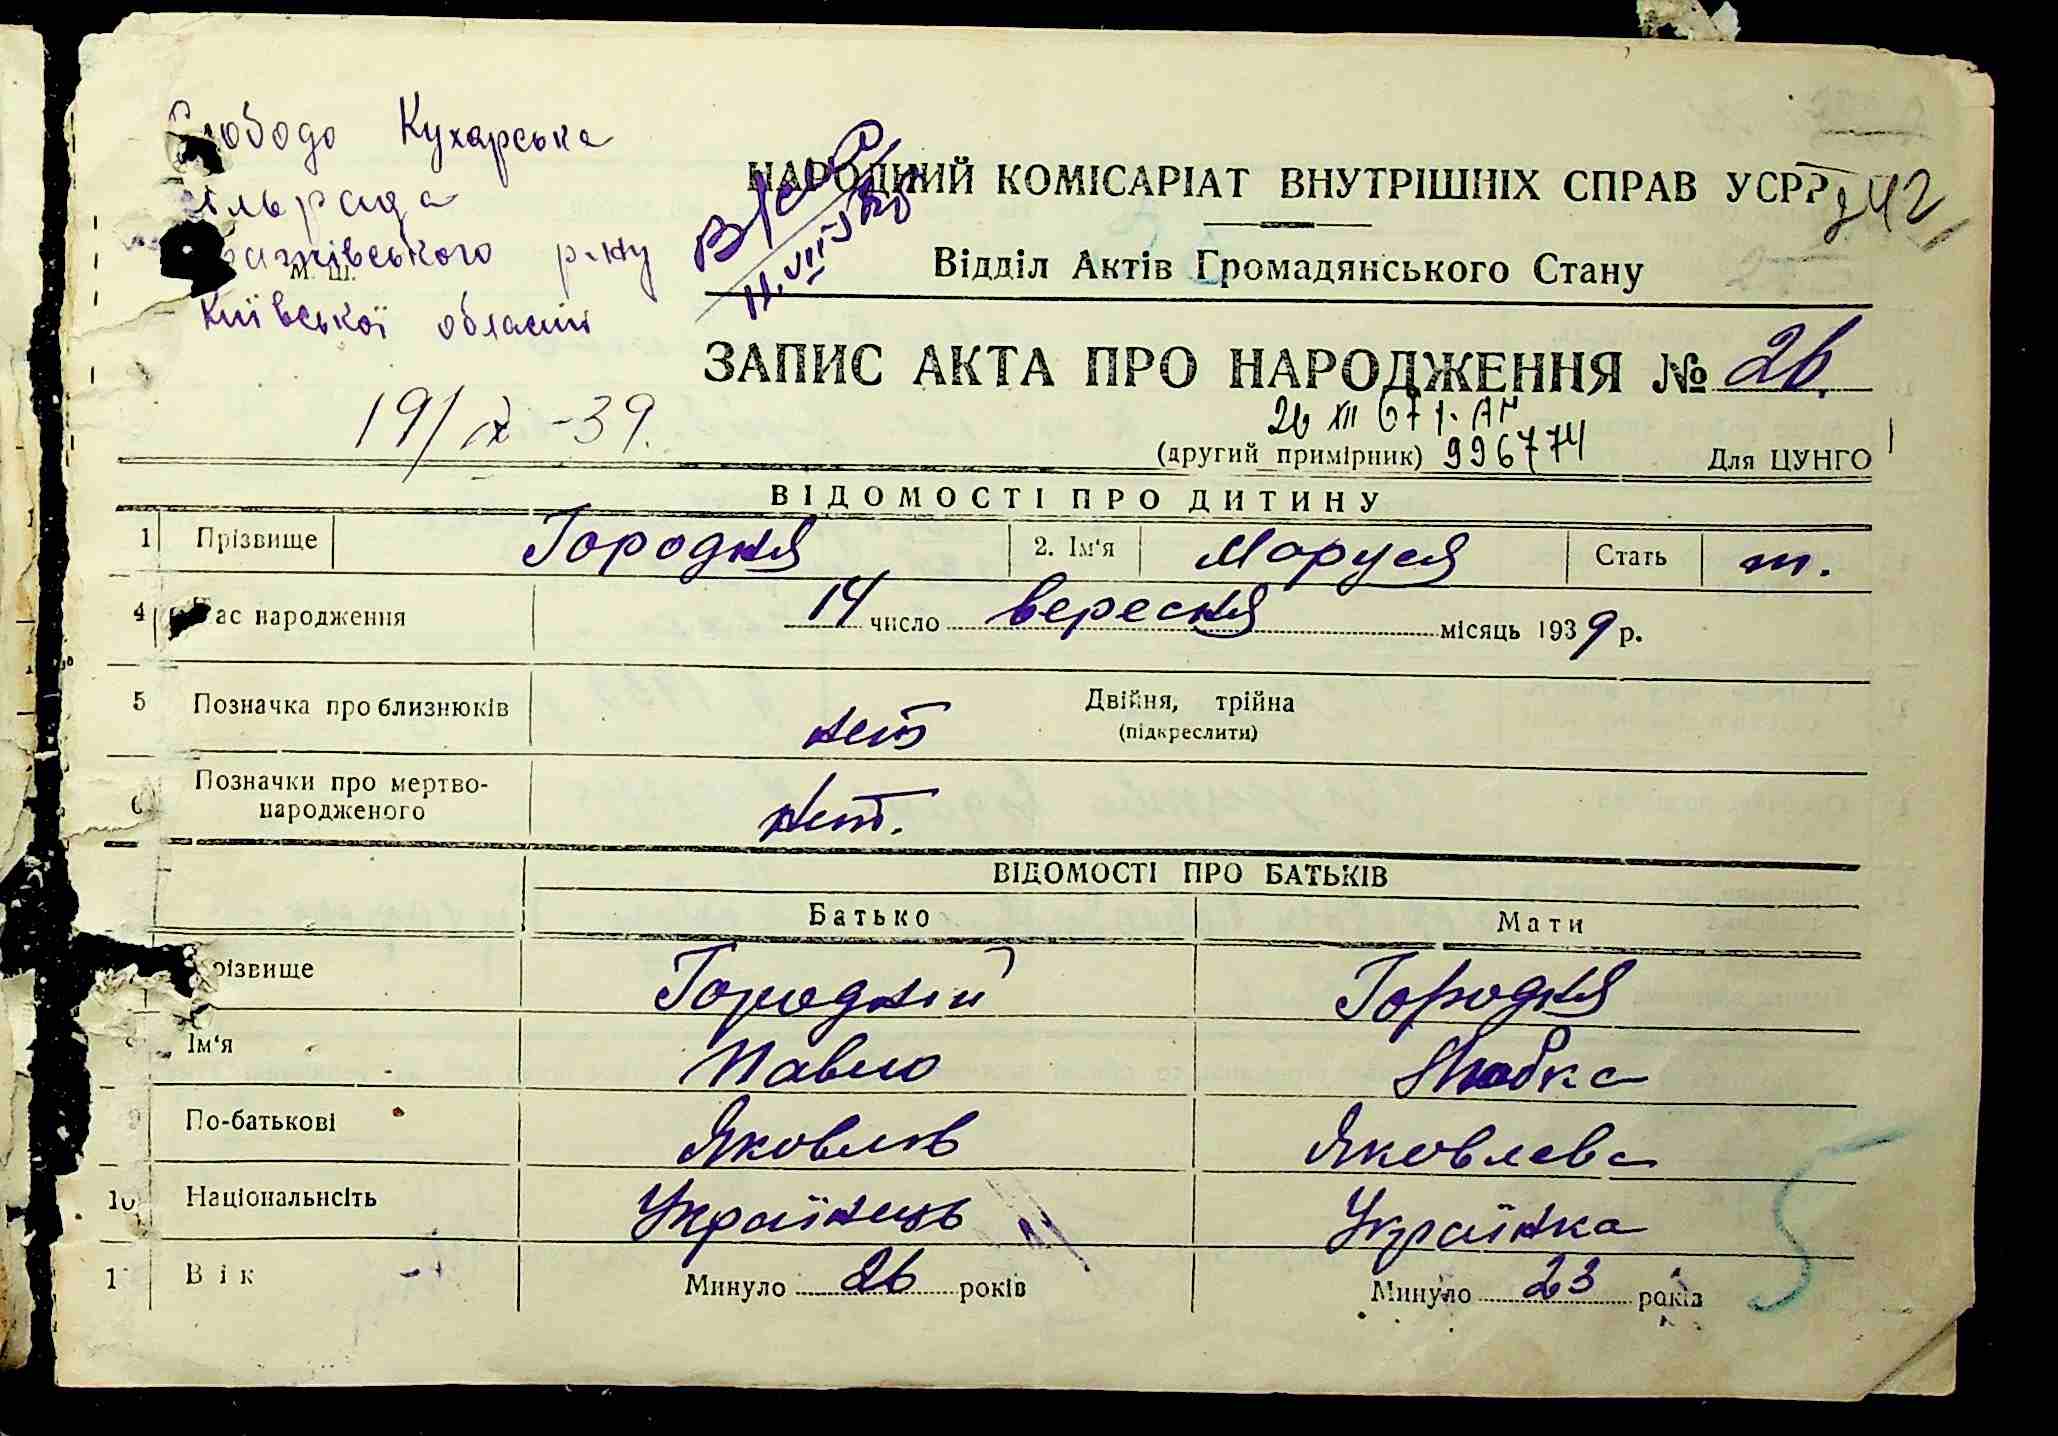 Слободо Кухарська
сільрада
району
М. Ш.
Київської області
НАРОДНИЙ КОМІСАРІАТ ВНУТРІШНІХ СПРАВ УСРР
242
Відділ Актів Громадянського Стану
11.VIII
ЗАПИС АКТА ПРО НАРОДЖЕННЯ № 26.
19/IX-39.
26 XII 67 р. АН
(другий примірник) 996774 Для ЦУНГО
ВІДОМОСТІ ПРО ДИТИНУ
1 Прізвище Городня 2. Ім'я Маруся Стать ж.
4 Час народження 14 число вересня місяць 1939 р.
5 Позначка про близнюків нет Двійня, трійна
(підкреслити)
6 Позначки про мертво-
народженого нет.
ВІДОМОСТІ ПРО БАТЬКІВ
Батько Мати
різвище Городній Городня
8 Ім'я Павло Любка
9 По-батькові Яковлів Яковлева
10 Національнсіть Українець Українка
1 Вік Минуло 26 років Минуло 23 років
5